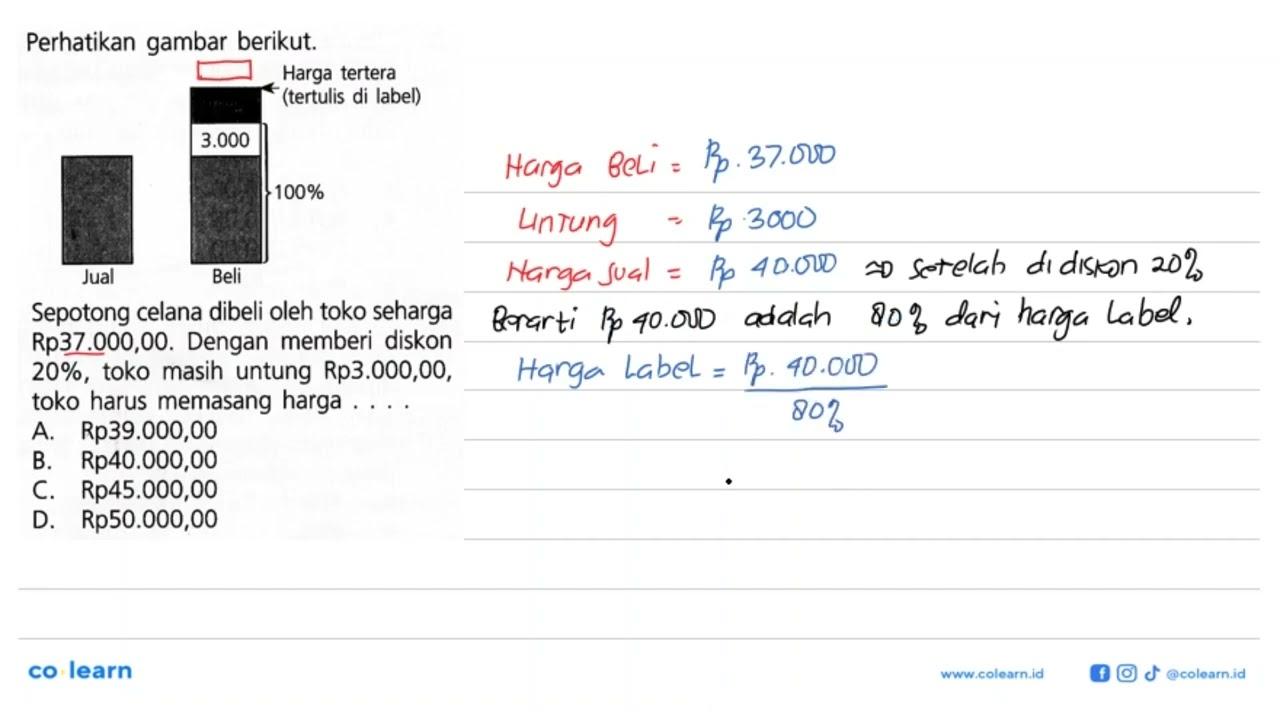 Perhatikan gambar berikut.
Harga tertera
(tertulis di label)
3.000
100%
Jual
Beli
Sepotong celana dibeli oleh toko seharga
Rp37.000,00. Dengan memberi diskon
20%, toko masih untung Rp3.000,00,
toko harus memasang harga . . . .
A. Rp39.000,00
B. Rp40.000,00
C. Rp45.000,00
D. Rp50.000,00
Harga Beli = Rp. 37.000
Untung = Rp 3000
Harga Jual = Rp 40.000 => setelah di diskon 20%
Berarti Rp 40.000 adalah 80% dari harga Label.
Harga Label = Rp. 40.000
80%
co learn
www.colearn.id
@colearn.id